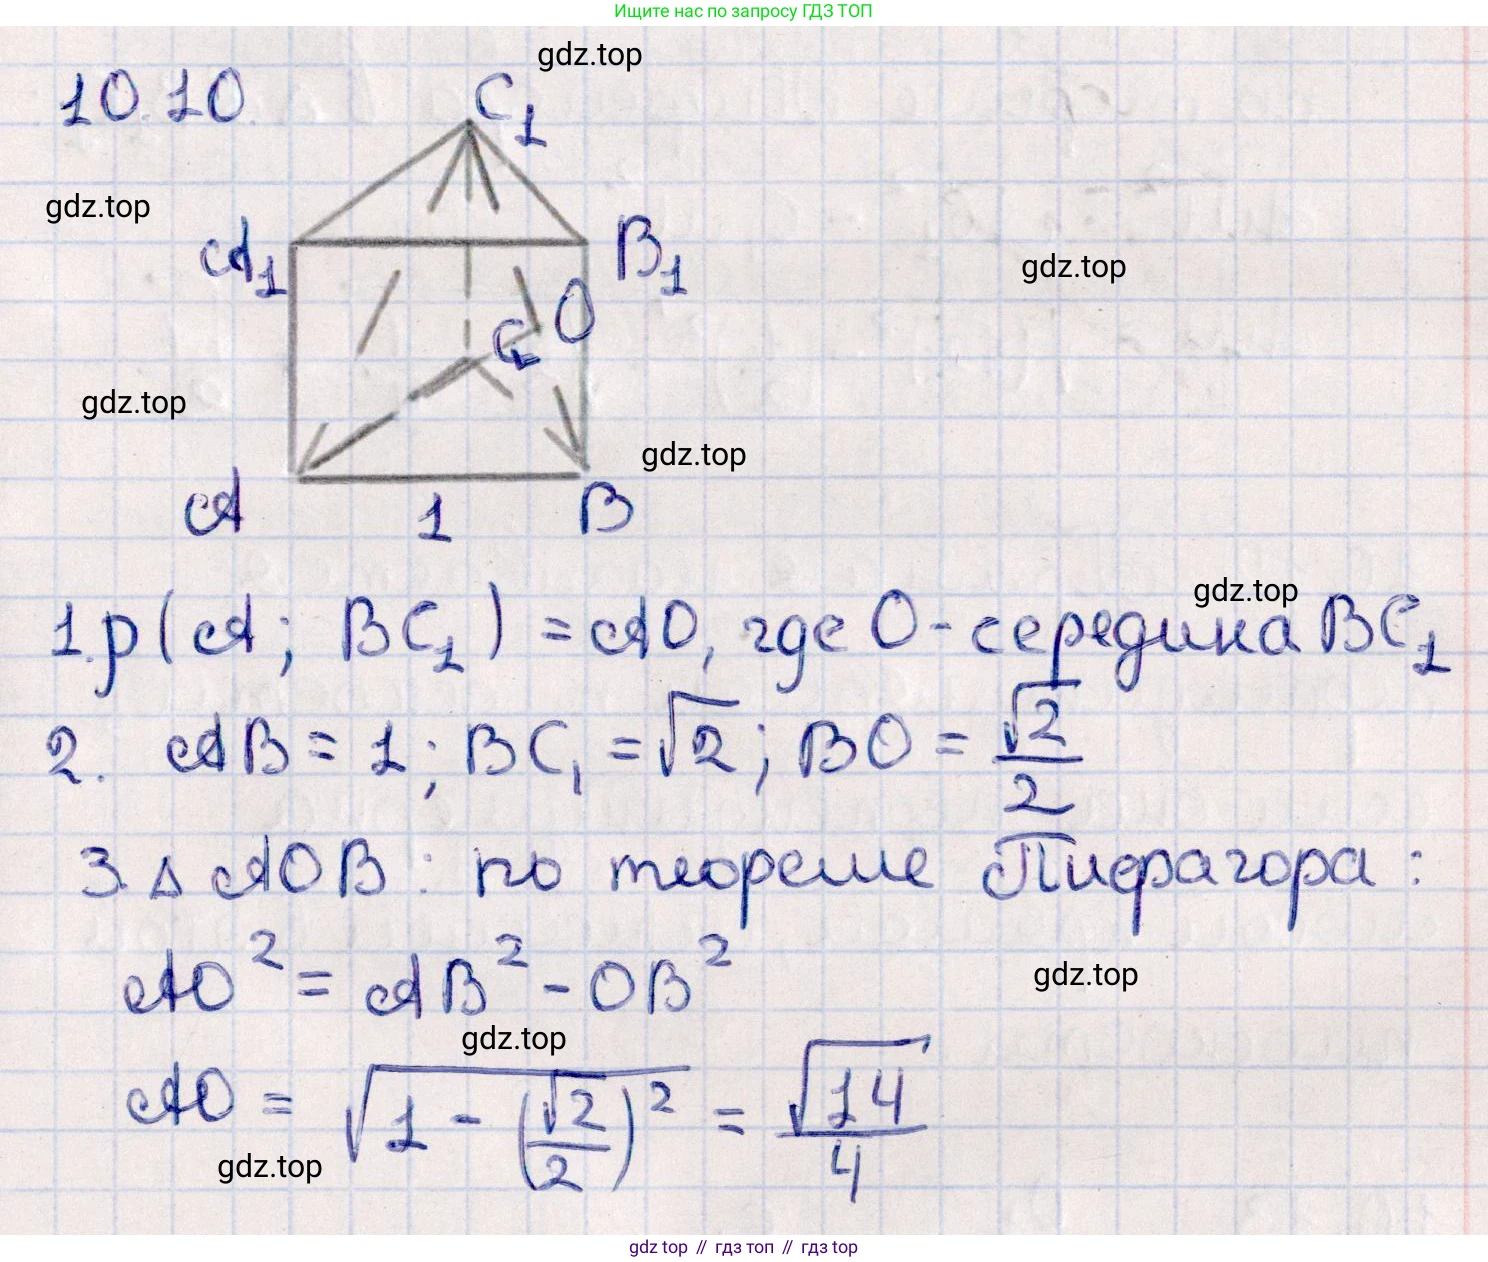 Ищите нас по запросу ГДЗ ТОП
gdz.top
10.10.
C₁
gdz.top
A₁
B₁
gdz.top
O
C
gdz.top
gdz.top
A
1
B
gdz.top
1. ρ(A; BC₁) = AO, где O - середина BC₁
2. AB = 1; BC₁ = √2; BO = √2/2
3. △ AOB: по теореме Пифагора:
AO² = AB² - OB²
gdz.top
gdz.top
AO = √(1 - (√2/2)²) = √14/4
gdz.top
gdz top // гдз топ // гдз top